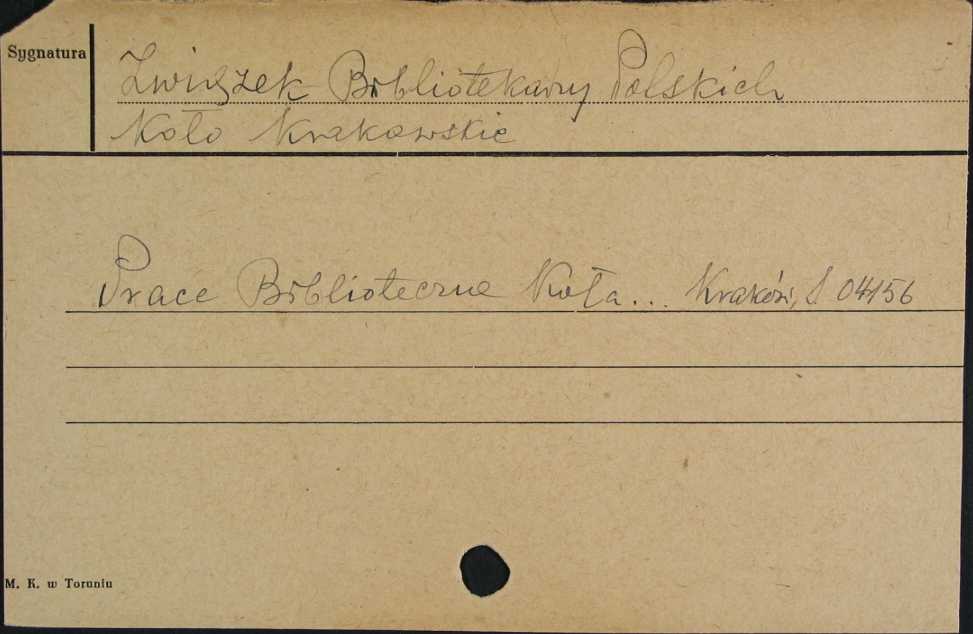 Sygnatura
Związek Bibliotekarzy Polskich
Koło Krakowskie
Prace Biblioteczne Koła... Kraków, S 04156
M. K. w Toruniu